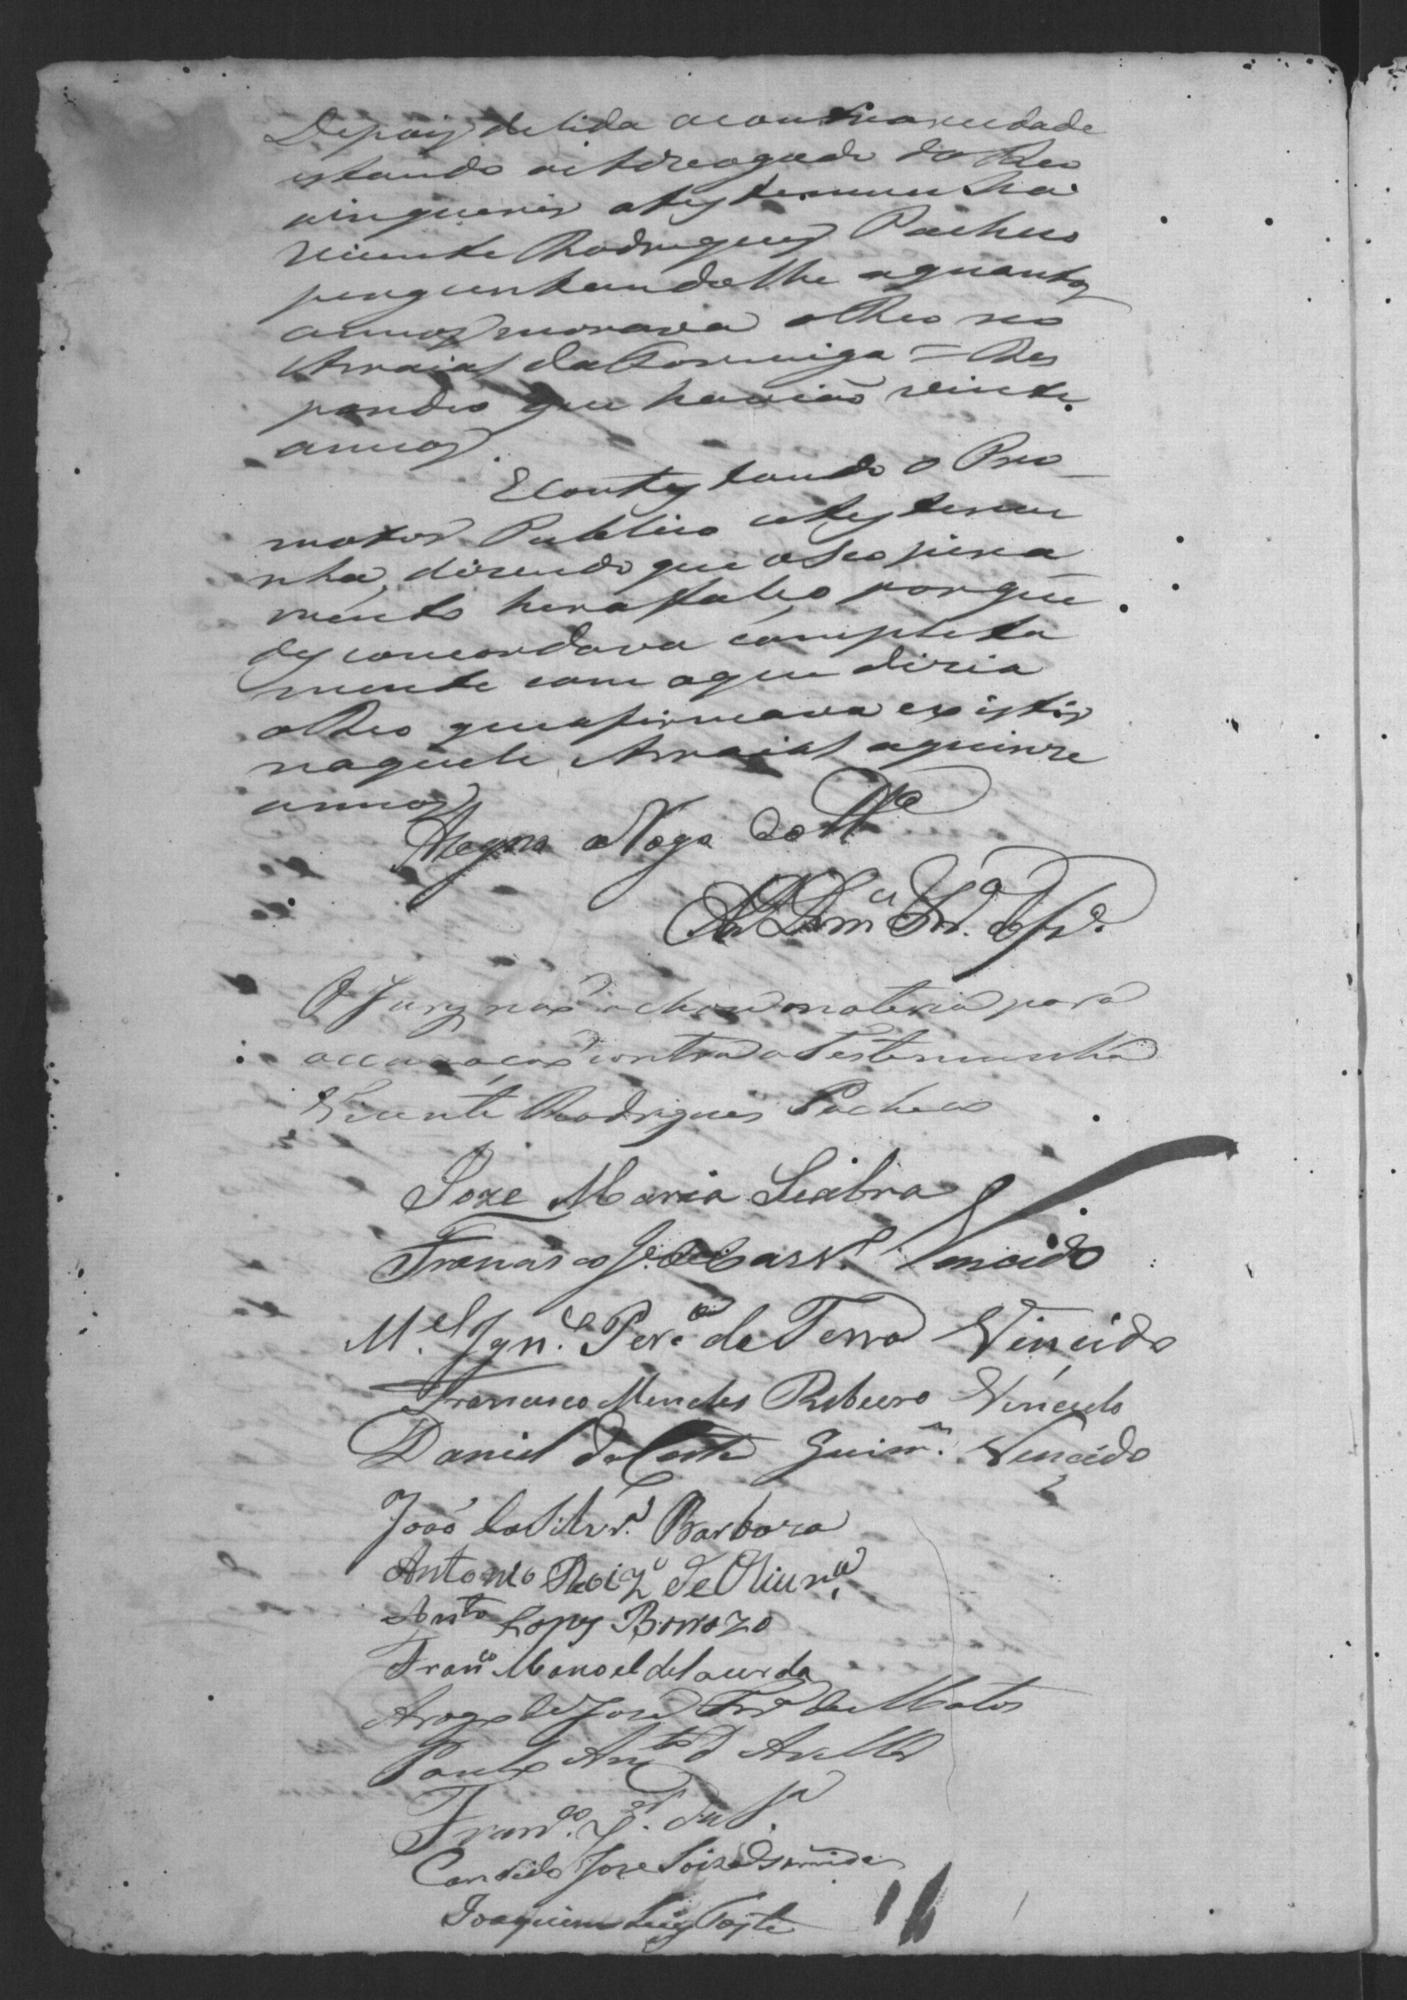 Depois de lida a contrariedade
estando o interrogado do Reo
inquerir a testemunha
Vicente Rodrigues Pacheco
perguntandolhe a quantos
annos morava o Reo no
Arraial da Formiga = Res
pondeo que havião vinte
annos.
E contestando o Pro
motor Publico a testemu
nha, dizendo que o seo jura
mento hera falso porque
desconcordava completa
mente com o que dizia
o Reo que afirmava existir
naquele Arraial a quinze
annos
A rogo da
O Jury não achou materia para
accusação contra a Testemunha
Vicente Rodrigues Pacheco
Joze Maria Seabra
Francisco Vencido
M.el Ign.co Per.a de Terra Vencido
Francisco Mendes Ribeiro Vencido
Daniel da Costa Guim.es Vencido
João da Silvr.a Barboza
Antonio Roiz de Olivr.a
Ant.o Lopes Barrozo
Fran.co Manoel de Lacerda
A rogo de José Frr.a de Matos
Paulo Ant.o d Avella
Fran.co
Candido Joze
Joaquim Luiz